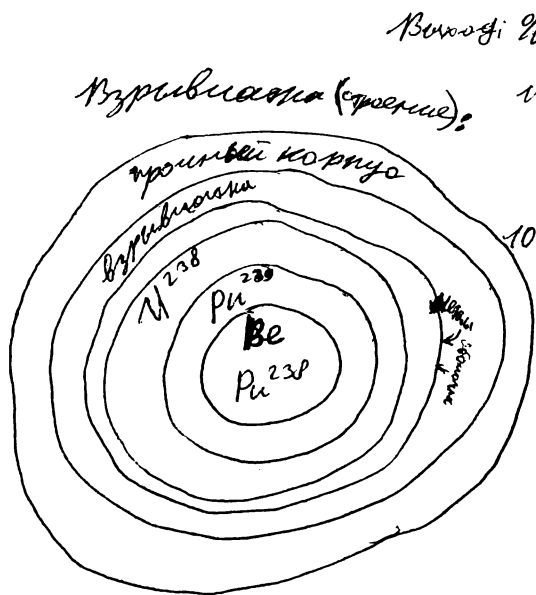 Выход:
Взрывчатка (строение):
прочный корпус
взрывчатка
U²³⁸
Pu²³⁹
Be
Pu²³⁸
10